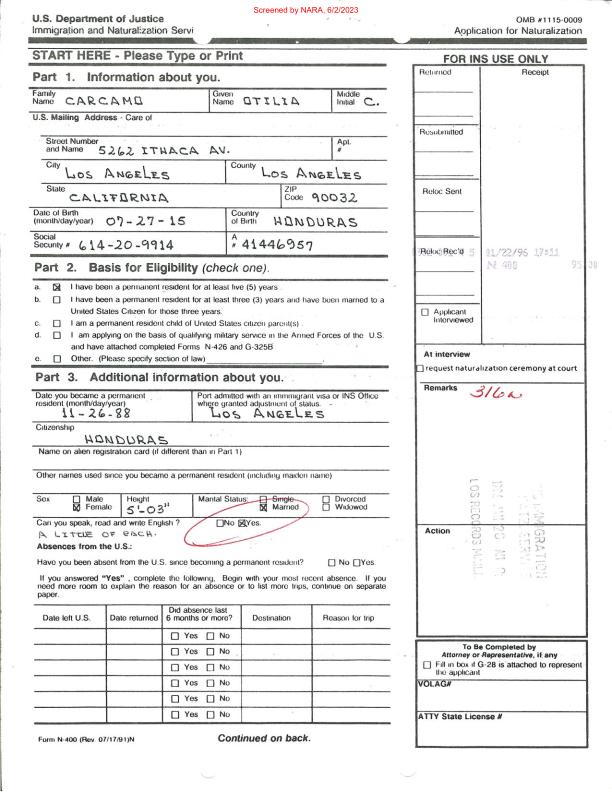 Screened by NARA, 6/2/2023
U.S. Department of Justice
Immigration and Naturalization Servi
OMB #1115-0009
Application for Naturalization
START HERE - Please Type or Print
Part 1. Information about you.
Family Name CARCAMO
Given Name OTILIA
Middle Initial C.
U.S. Mailing Address - Care of
Street Number and Name 5262 ITHACA AV.
Apt. #
City LOS ANGELES
County LOS ANGELES
State CALIFORNIA
ZIP Code 90032
Date of Birth (month/day/year) 07-27-15
Country of Birth HONDURAS
Social Security # 614-20-9914
A # 41446957
Part 2. Basis for Eligibility (check one).
a. I have been a permanent resident for at least five (5) years
b. I have been a permanent resident for at least three (3) years and have been married to a
United States Citizen for those three years.
c. I am a permanent resident child of United States citizen parent(s)
d. I am applying on the basis of qualifying military service in the Armed Forces of the U.S.
and have attached completed Forms N-426 and G-325B
e. Other. (Please specify section of law)
Part 3. Additional information about you.
Date you became a permanent resident (month/day/year) 11-26-88
Port admitted with an immigrant visa or INS Office where granted adjustment of status. LOS ANGELES
Citizenship
HONDURAS
Name on alien registration card (if different than in Part 1)
Other names used since you became a permanent resident (including maiden name)
Sex Male Female
Height 5'-03"
Marital Status: Single Married Divorced Widowed
Can you speak, read and write English ? No Yes.
A LITTLE OF EACH.
Absences from the U.S.:
Have you been absent from the U.S. since becoming a permanent resident? No Yes.
If you answered "Yes" , complete the following, Begin with your most recent absence. If you
need more room to explain the reason for an absence or to list more trips, continue on separate
paper.
Date left U.S.
Date returned
Did absence last 6 months or more?
Destination
Reason for trip
Yes No
Yes No
Yes No
Yes No
Yes No
Yes No
Form N-400 (Rev. 07/17/91)N
Continued on back.
FOR INS USE ONLY
Returned
Receipt
Resubmitted
Reloc Sent
Reloc Rec'd
01/22/96 17:11
N 400
Applicant Interviewed
At interview
request naturalization ceremony at court
Remarks
316a
Action
IMMIGRATION
LOS RECORDS
To Be Completed by
Attorney or Representative, if any
Fill in box if G-28 is attached to represent
the applicant
VOLAG#
ATTY State License #